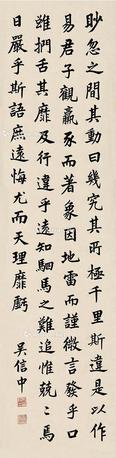 眇忽之間其動曰幾究其所極千里斯違是以作
易君子觀羸豕而著象因地雷而謹微言發乎口
雖捫舌其靡及行違乎遠知駟馬之難追惟兢〻焉
日嚴乎斯語庶遠悔尤而天理靡虧
吳信中